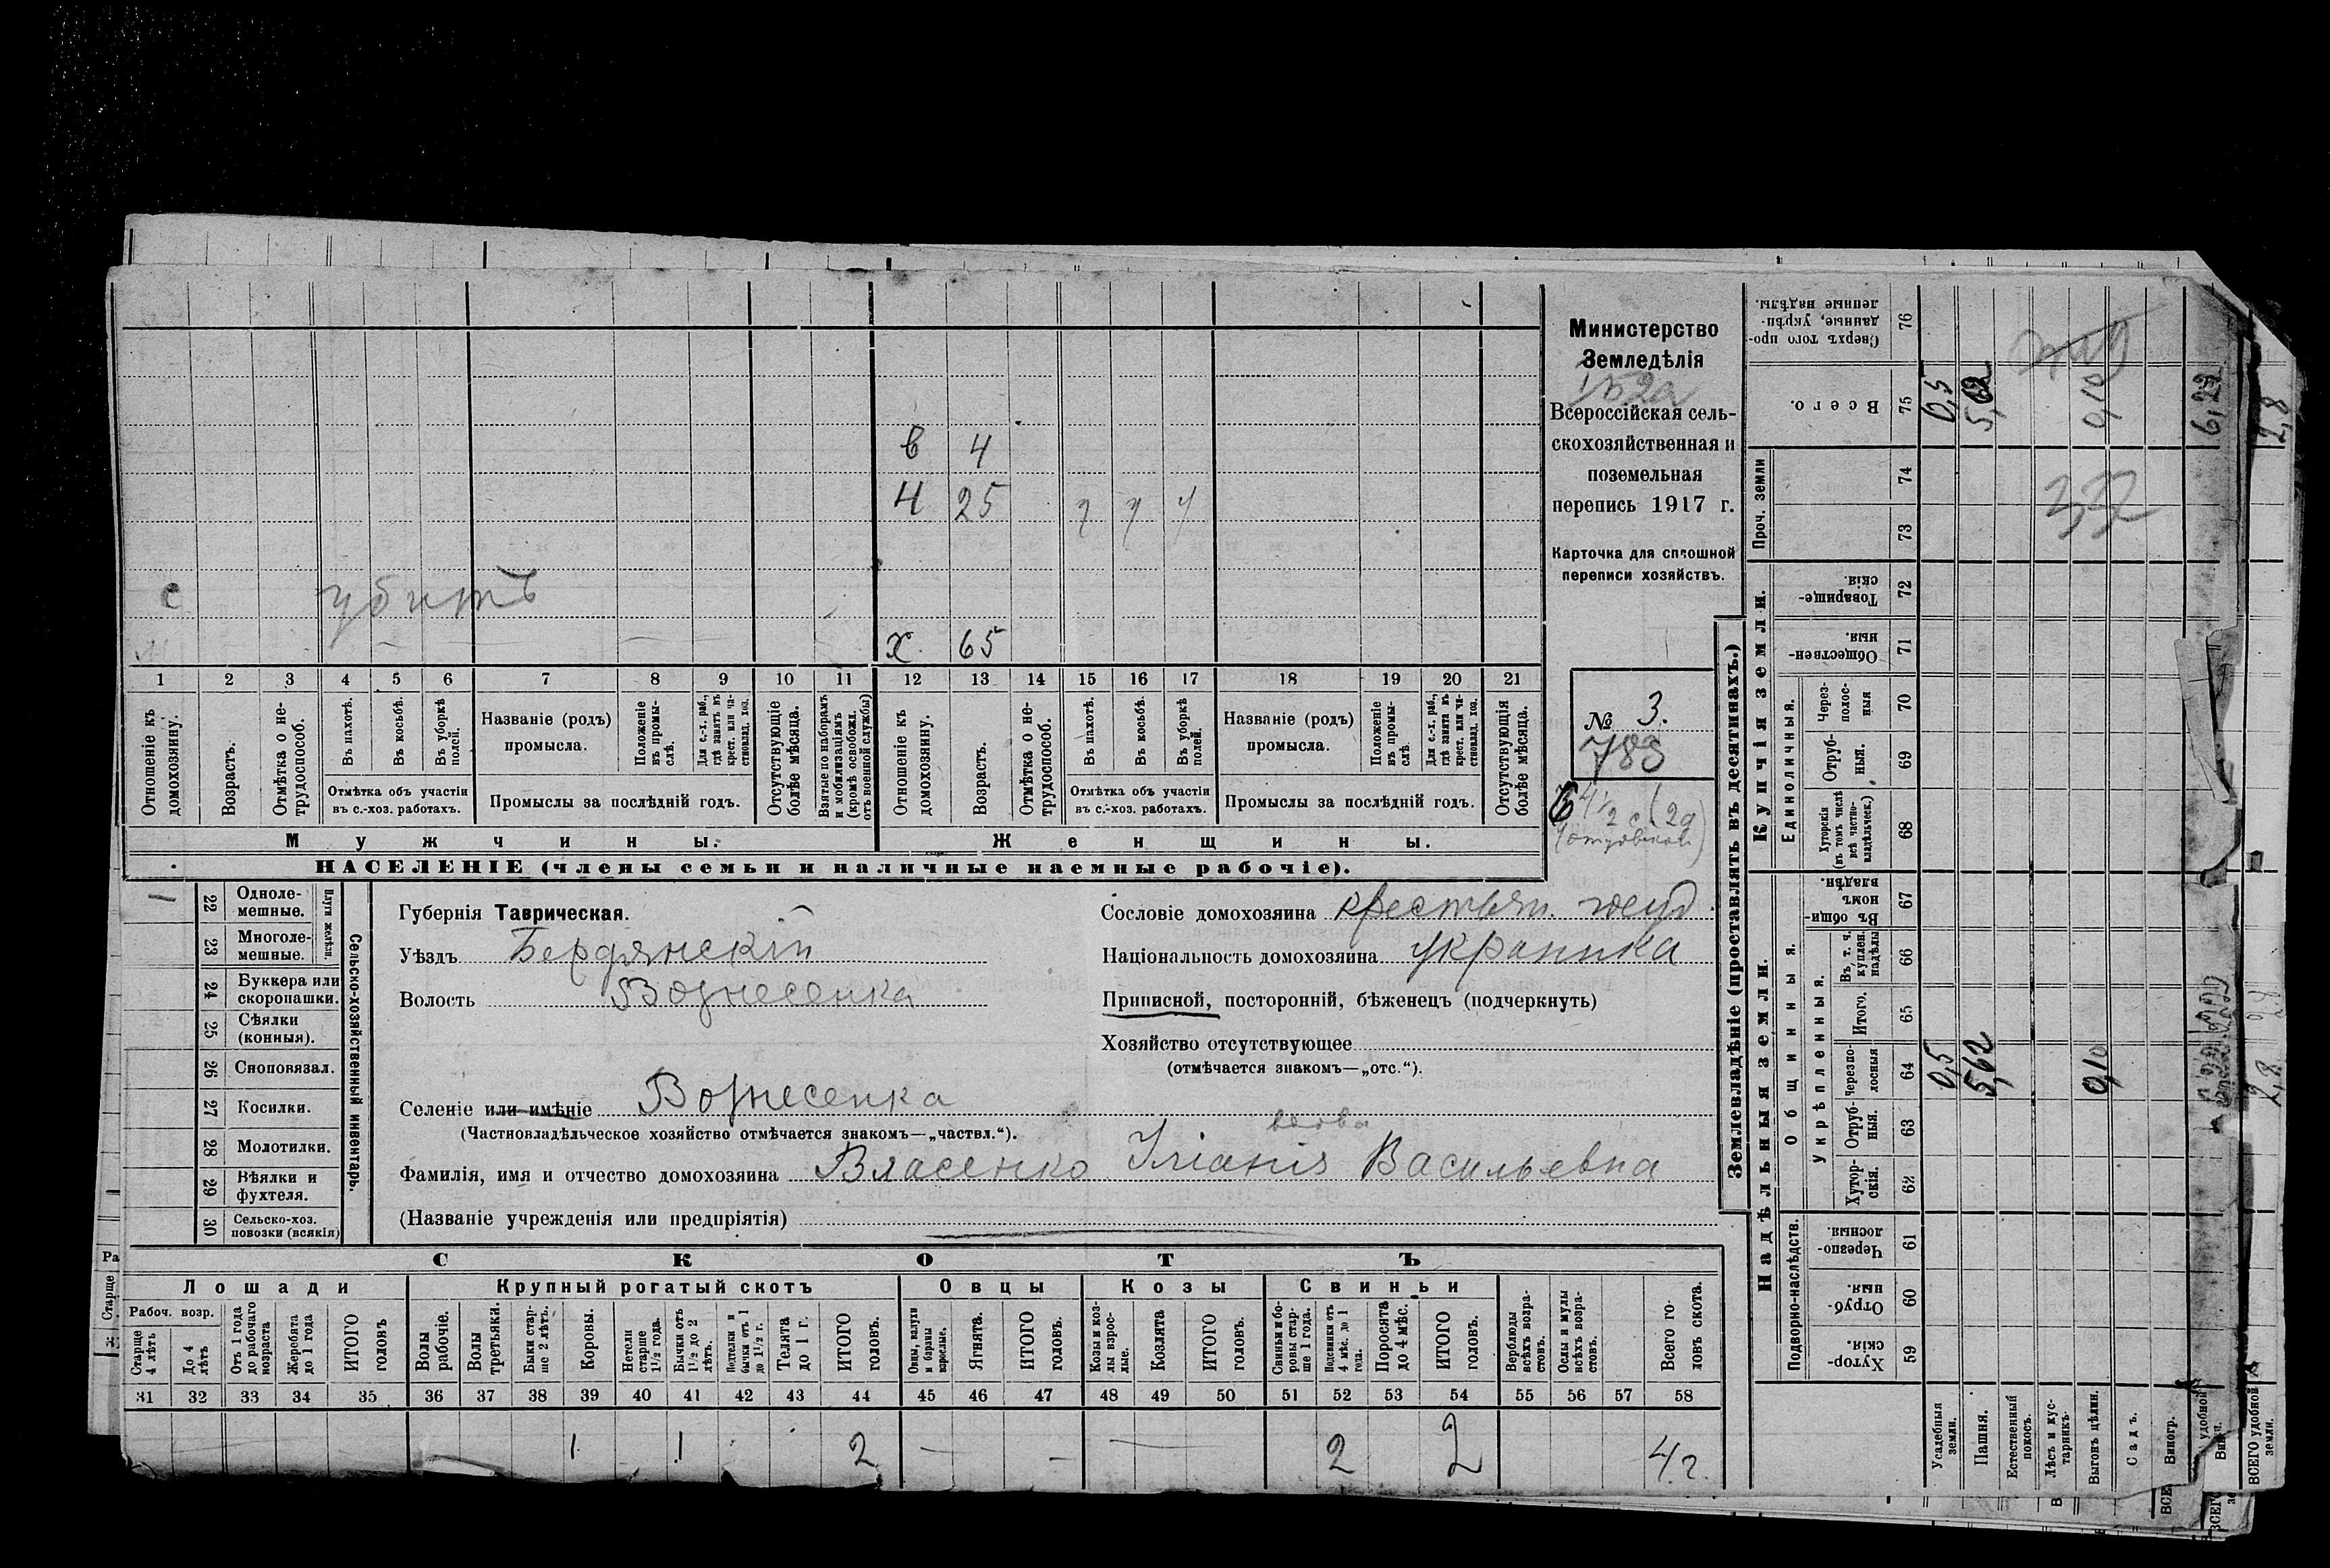 Министерство
Земледѣлія
Всероссійская сель-
скохозяйственная и
поземельная
перепись 1917 г.
Карточка для сплошной
переписи хозяйствъ.
№ 3.
783
в 4
Ч 25
с убитъ
х 65
1 2 3 4 5 6 7 8 9 10 11 12 13 14 15 16 17 18 19 20 21
Отношеніе къ домохозяину.
Возрастъ.
Отмѣтка о не-трудоспособ.
Въ пахотѣ.
Въ косьбѣ.
Въ уборкѣ полей.
Отмѣтка объ участіи въ с.-хоз. работахъ.
Названіе (родъ) промысла.
Положеніе въ промы-слѣ.
Для с.-х. раб., гдѣ занятъ въ крест. или ча-стновлад. хоз.
Промыслы за послѣдній годъ.
Отсутствующіе болѣе мѣсяца.
Взятые по наборамъ и мобилизаціямъ (кромѣ освобожд. отъ военной службы)
Отношеніе къ домохозяину.
Возрастъ.
Отмѣтка о не-трудоспособ.
Въ пахотѣ.
Въ косьбѣ.
Въ уборкѣ полей.
Отмѣтка объ участіи въ с.-хоз. работахъ.
Названіе (родъ) промысла.
Положеніе въ промы-слѣ.
Для с.-х. раб., гдѣ занята въ крест. или ча-стновлад. хоз.
Промыслы за послѣдній годъ.
Отсутствующія болѣе мѣсяца.
Мужчины. Женщины.
НАСЕЛЕНІЕ (члены семьи и наличные наемные рабочіе).
Сельско-хозяйственный инвентарь.
Плуги желѣзн.
22 Одноле-мешные. 1
23 Многоле-мешные.
24 Буккера или скоропашки.
25 Сѣялки (конныя).
26 Сноповязал.
27 Косилки.
28 Молотилки.
29 Вѣялки и фухтеля.
30 Сельско-хоз. повозки (всякія)
Губернія Таврическая.
Уѣздъ Бердянскій
Волость Вознесенка
Селеніе или имѣніе Вознесенка
(Частновладѣльческое хозяйство отмѣчается знакомъ—„частвл.“).
Фамилія, имя и отчество домохозяина Власенко Уліанія Васильевна
(Названіе учрежденія или предпріятія)
Сословіе домохозяина крестьян.
Національность домохозяина украинка
Приписной, посторонній, бѣженецъ (подчеркнуть)
Хозяйство отсутствующее
(отмѣчается знакомъ—„отс.“).
СКОТЪ
Лошади Крупный рогатый скотъ Овцы Козы Свиньи
Рабоч. возр.
Старше 4 лѣтъ
До 4 лѣтъ
Отъ 1 года до рабочаго возраста
Жеребята до 1 года
ИТОГО головъ
Волы рабочіе.
Волы третьяки.
Быки стар-ше 2 лѣтъ.
Коровы.
Нетели старше 1½ года.
Бычки отъ 1½ до 2 лѣтъ.
Подтелки и бычки отъ 1 до 1½ г.
Телята до 1 г.
ИТОГО головъ.
Овцы, валухи и бараны взрослые.
Ягнята.
ИТОГО головъ.
Козы и коз-лы взрос-лые.
Козлята
ИТОГО головъ.
Свиньи и бо-ровы стар-ше 1 года.
Подсвинки отъ 4 мѣс. до 1 года.
Поросята до 4 мѣс.
ИТОГО головъ.
Верблюды всѣхъ возра-стовъ.
Ослы и мулы всѣхъ возра-стовъ.
Всего го-ловъ скота.
31 32 33 34 35 36 37 38 39 40 41 42 43 44 45 46 47 48 49 50 51 52 53 54 55 56 57 58
1 1 2 — — — 2 2 4 г.
Землевладѣніе (проставлять въ десятинахъ.)
Надѣльныя земли.
Купчія земли.
Проч. земли
Подворно-наслѣдств.
Общинныя.
Укрѣпленныя.
Единоличныя.
Хутор-скія. 59
Отруб-ныя. 60
Черезпо-лосныя. 61
Хутор-скія. 62
Отруб-ныя. 63
Черезпо-лосныя 64
Итого. 65
Въ т. ч. куплен. надѣлы 66
Въ общин-номъ владѣн. 67
Хуторскія (въ томъ числѣ всѣ частно-владѣльческ.) 68
Отруб-ныя. 69
Через-полос-ныя 70
Обществен-ныя. 71
Товарище-скія. 72
73
74
Всего. 75
Сверхъ того про-данные, укрѣп-ленные надѣлы. 76
Усадебныя земли. 0,5 0,5
Пашня. 5,62 5,62
Естественный покосъ.
Лѣсъ и кус-тарникъ.
Выгонъ цѣлин. 0,10 0,10
Садъ.
Виногр.
6,22
ВСЕГО удобной земли. 2,8 2,8